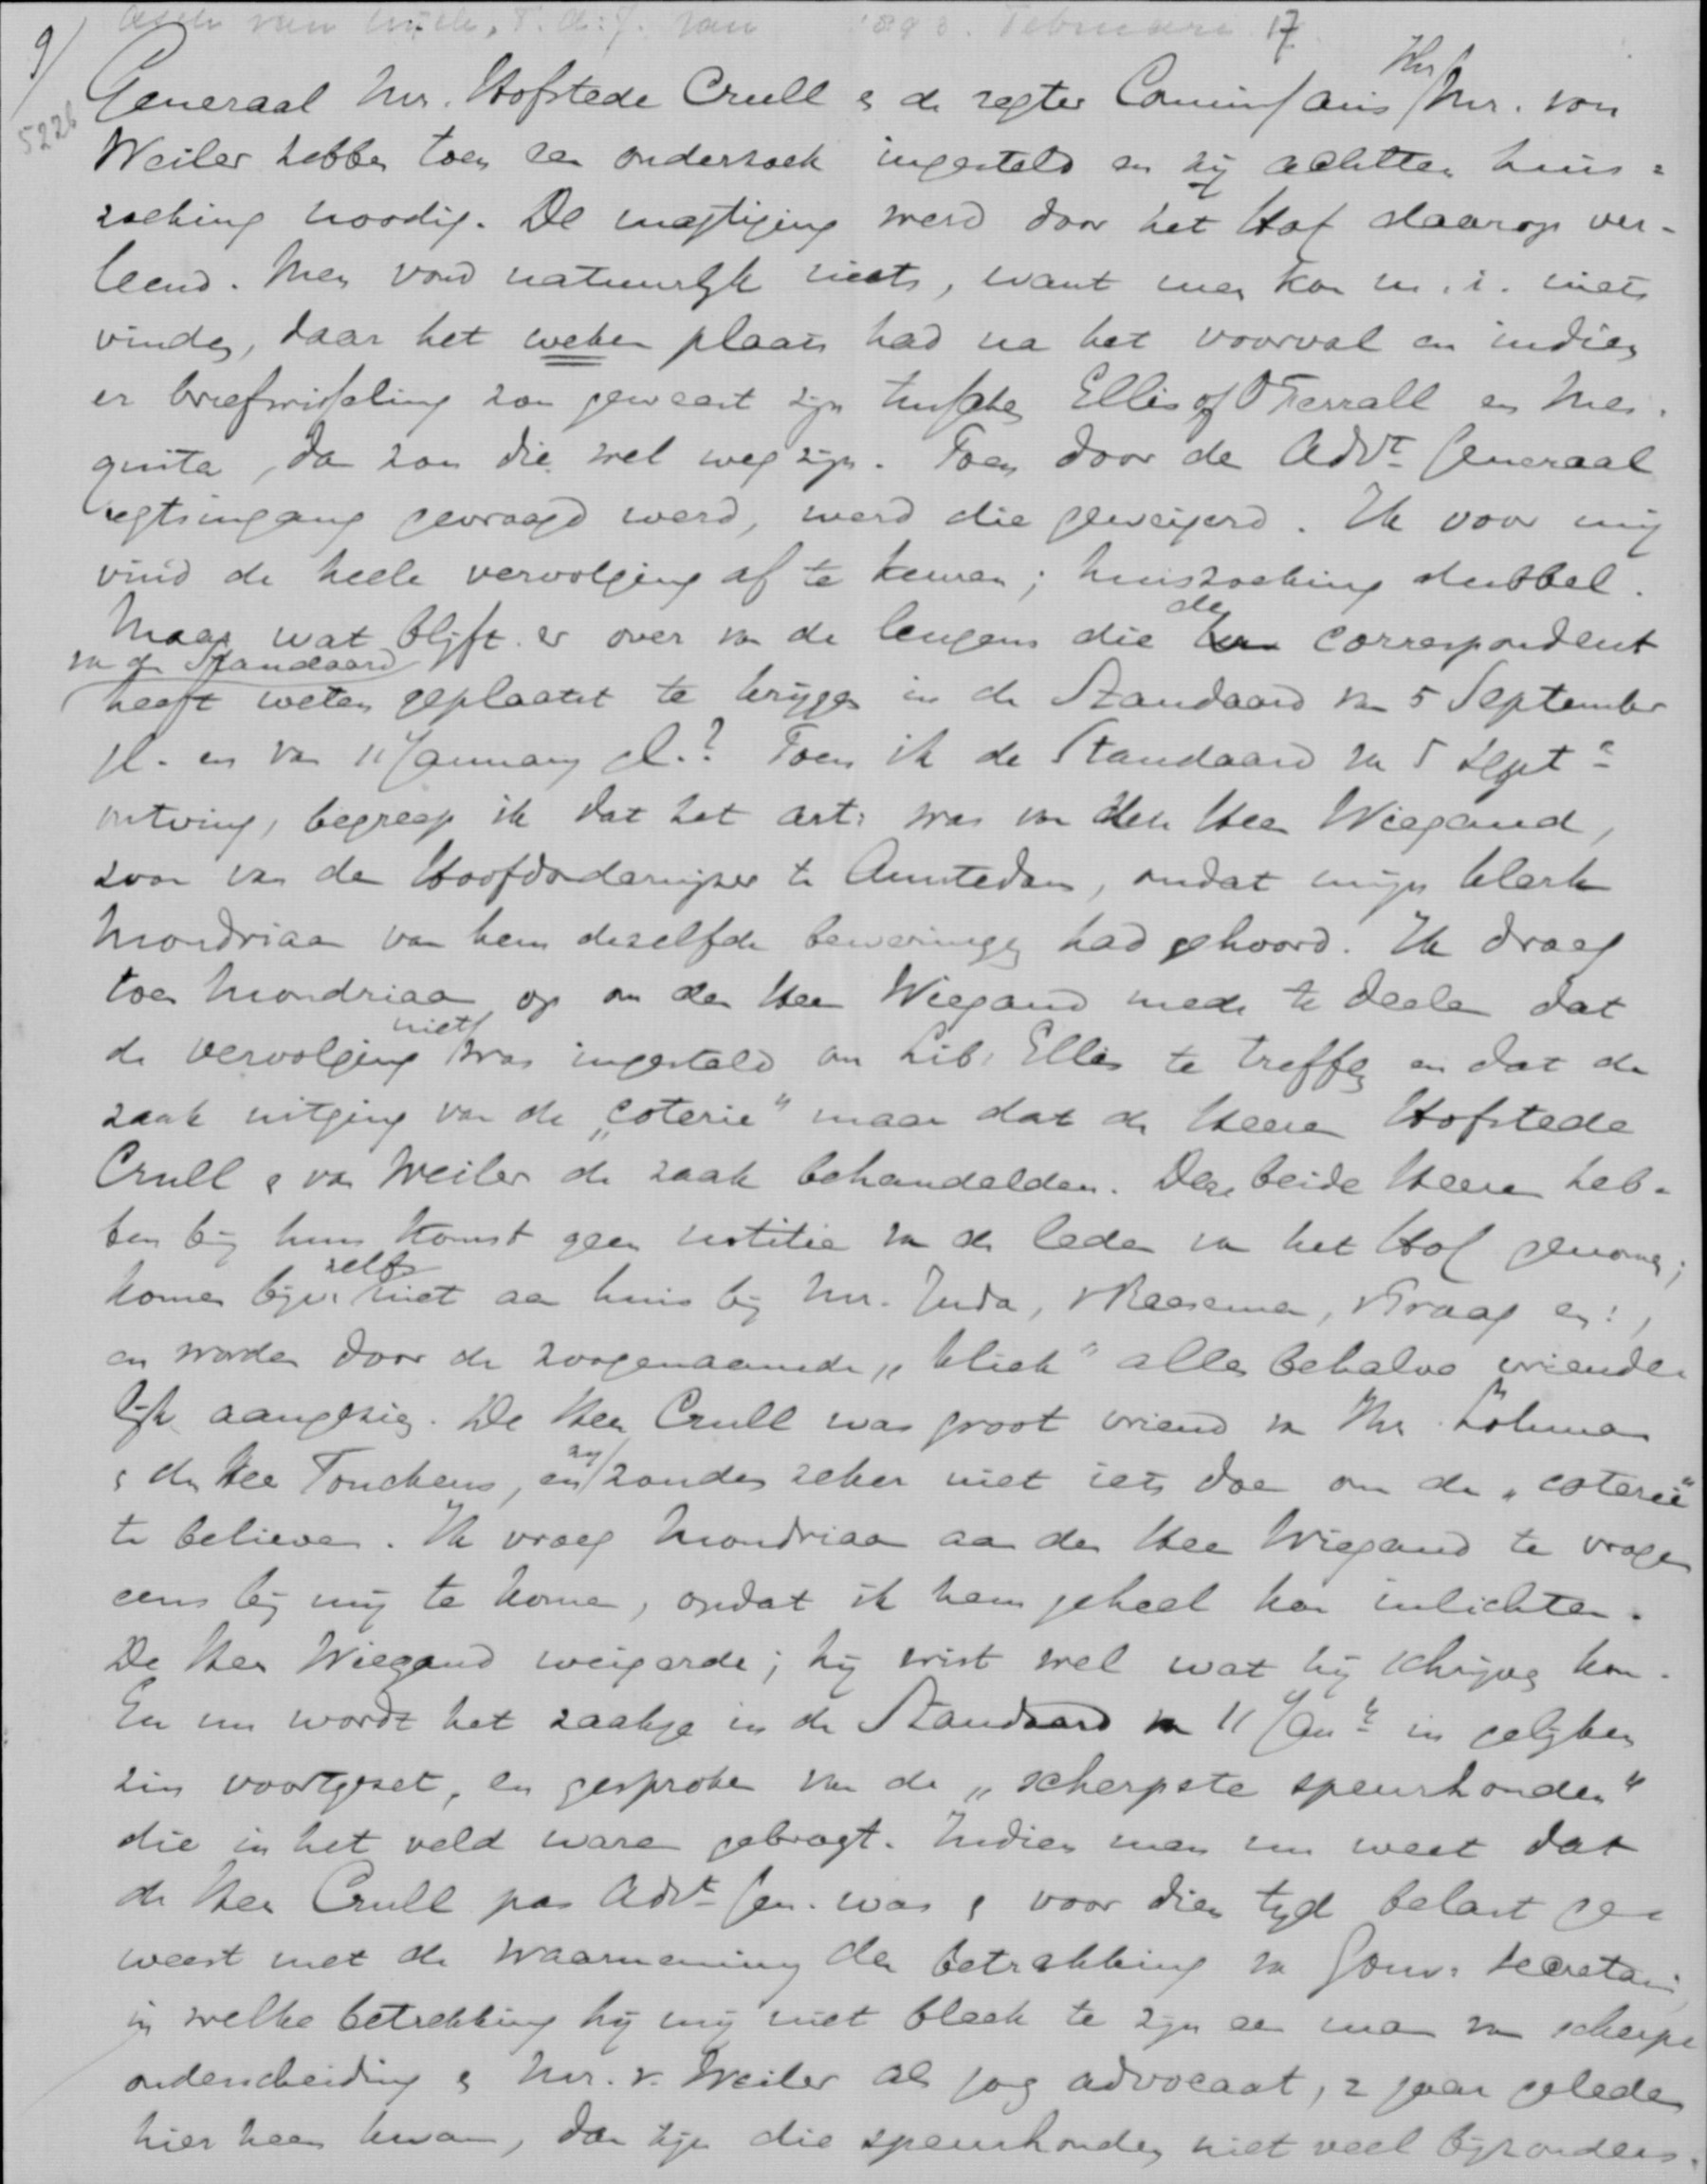 9/ 1893. Februari 17
5226
Generaal Mr. Hofstede Crull & de regter Commissaris Jhr Mr. von
Weiler hebben toen een onderzoek ingesteld en zij achtten huis-
zoeking noodig. De magtiging werd door het Hof daarop ver-
leend. Men vond natuurlijk niets, want men kon m. i. niets
vinden, daar het weken plaats had na het voorval en indien
er briefwisseling zou geweest zijn tusschen Ellis of O'Ferrall en Mes-
quita, dan zou die wel weg zijn. Toen door de Advt Generaal
regtsingang gevraagd werd, werd die geweigerd. Ik voor mij
vind de heele vervolging af te keuren; huiszoeking dubbel.
Maar wat blijft er over van de leugens die de correspondent
van de Standaard
heeft weten geplaatst te krijgen in de Standaard van 5 September
jl. en van 11 January jl.? Toen ik de Standaard van 5 Sept
ontving, begreep ik dat het art: was van den Heer Wiegand,
zoon van den Hoofdonderwijzer te Amsterdam, omdat mijn klerk
Mondriaan van hem dezelfde beweringen had gehoord. Ik droeg
toen Mondriaan op om den Heer Wiegand mede te deelen dat
de vervolging niet was ingesteld om Lib: Ellis te treffen en dat de
zaak uitging van de „coterie" maar dat de Heeren Hofstede
Crull & von Weiler de zaak behandelden. Deze beide Heeren heb-
ben bij hun komst geen notitie van de leden van het Hof genomen;
komen bijv. zelfs niet aan huis bij Mr. Juda, Kraag en:,
en worden door de zoogenaamde „kliek" alles behalve vriende-
lijk aangezien. De Heer Crull was groot vriend van Mr Lohman
& den Heer Tonckens, en zij zouden zeker niet iets doen om de „coterie"
te believen. Ik vroeg Mondriaan aan den Heer Wiegand te vragen
eens bij mij te komen, opdat ik hem geheel kon inlichten.
De Heer Wiegand weigerde; hij wist wel wat hij schrijven kon.
En nu wordt het zaakje in de Standaard van 11 Jan in gelijken
zin voortgezet, en gesproken van de „scherpste speurhonden"
die in het veld waren gebragt. Indien men nu weet dat
de Heer Crull pas Advt Gen. was & voor dien tijd belast ge-
weest met de waarneming der betrekking van Gouv. secretaris
in welke betrekking hij mij niet bleek te zijn een man van scherpe
onderscheiding & Mr. v. Weiler als jong advocaat, 2 jaar geleden
hier heen kwam, dan zijn die speurhonden niet veel bijzonders.